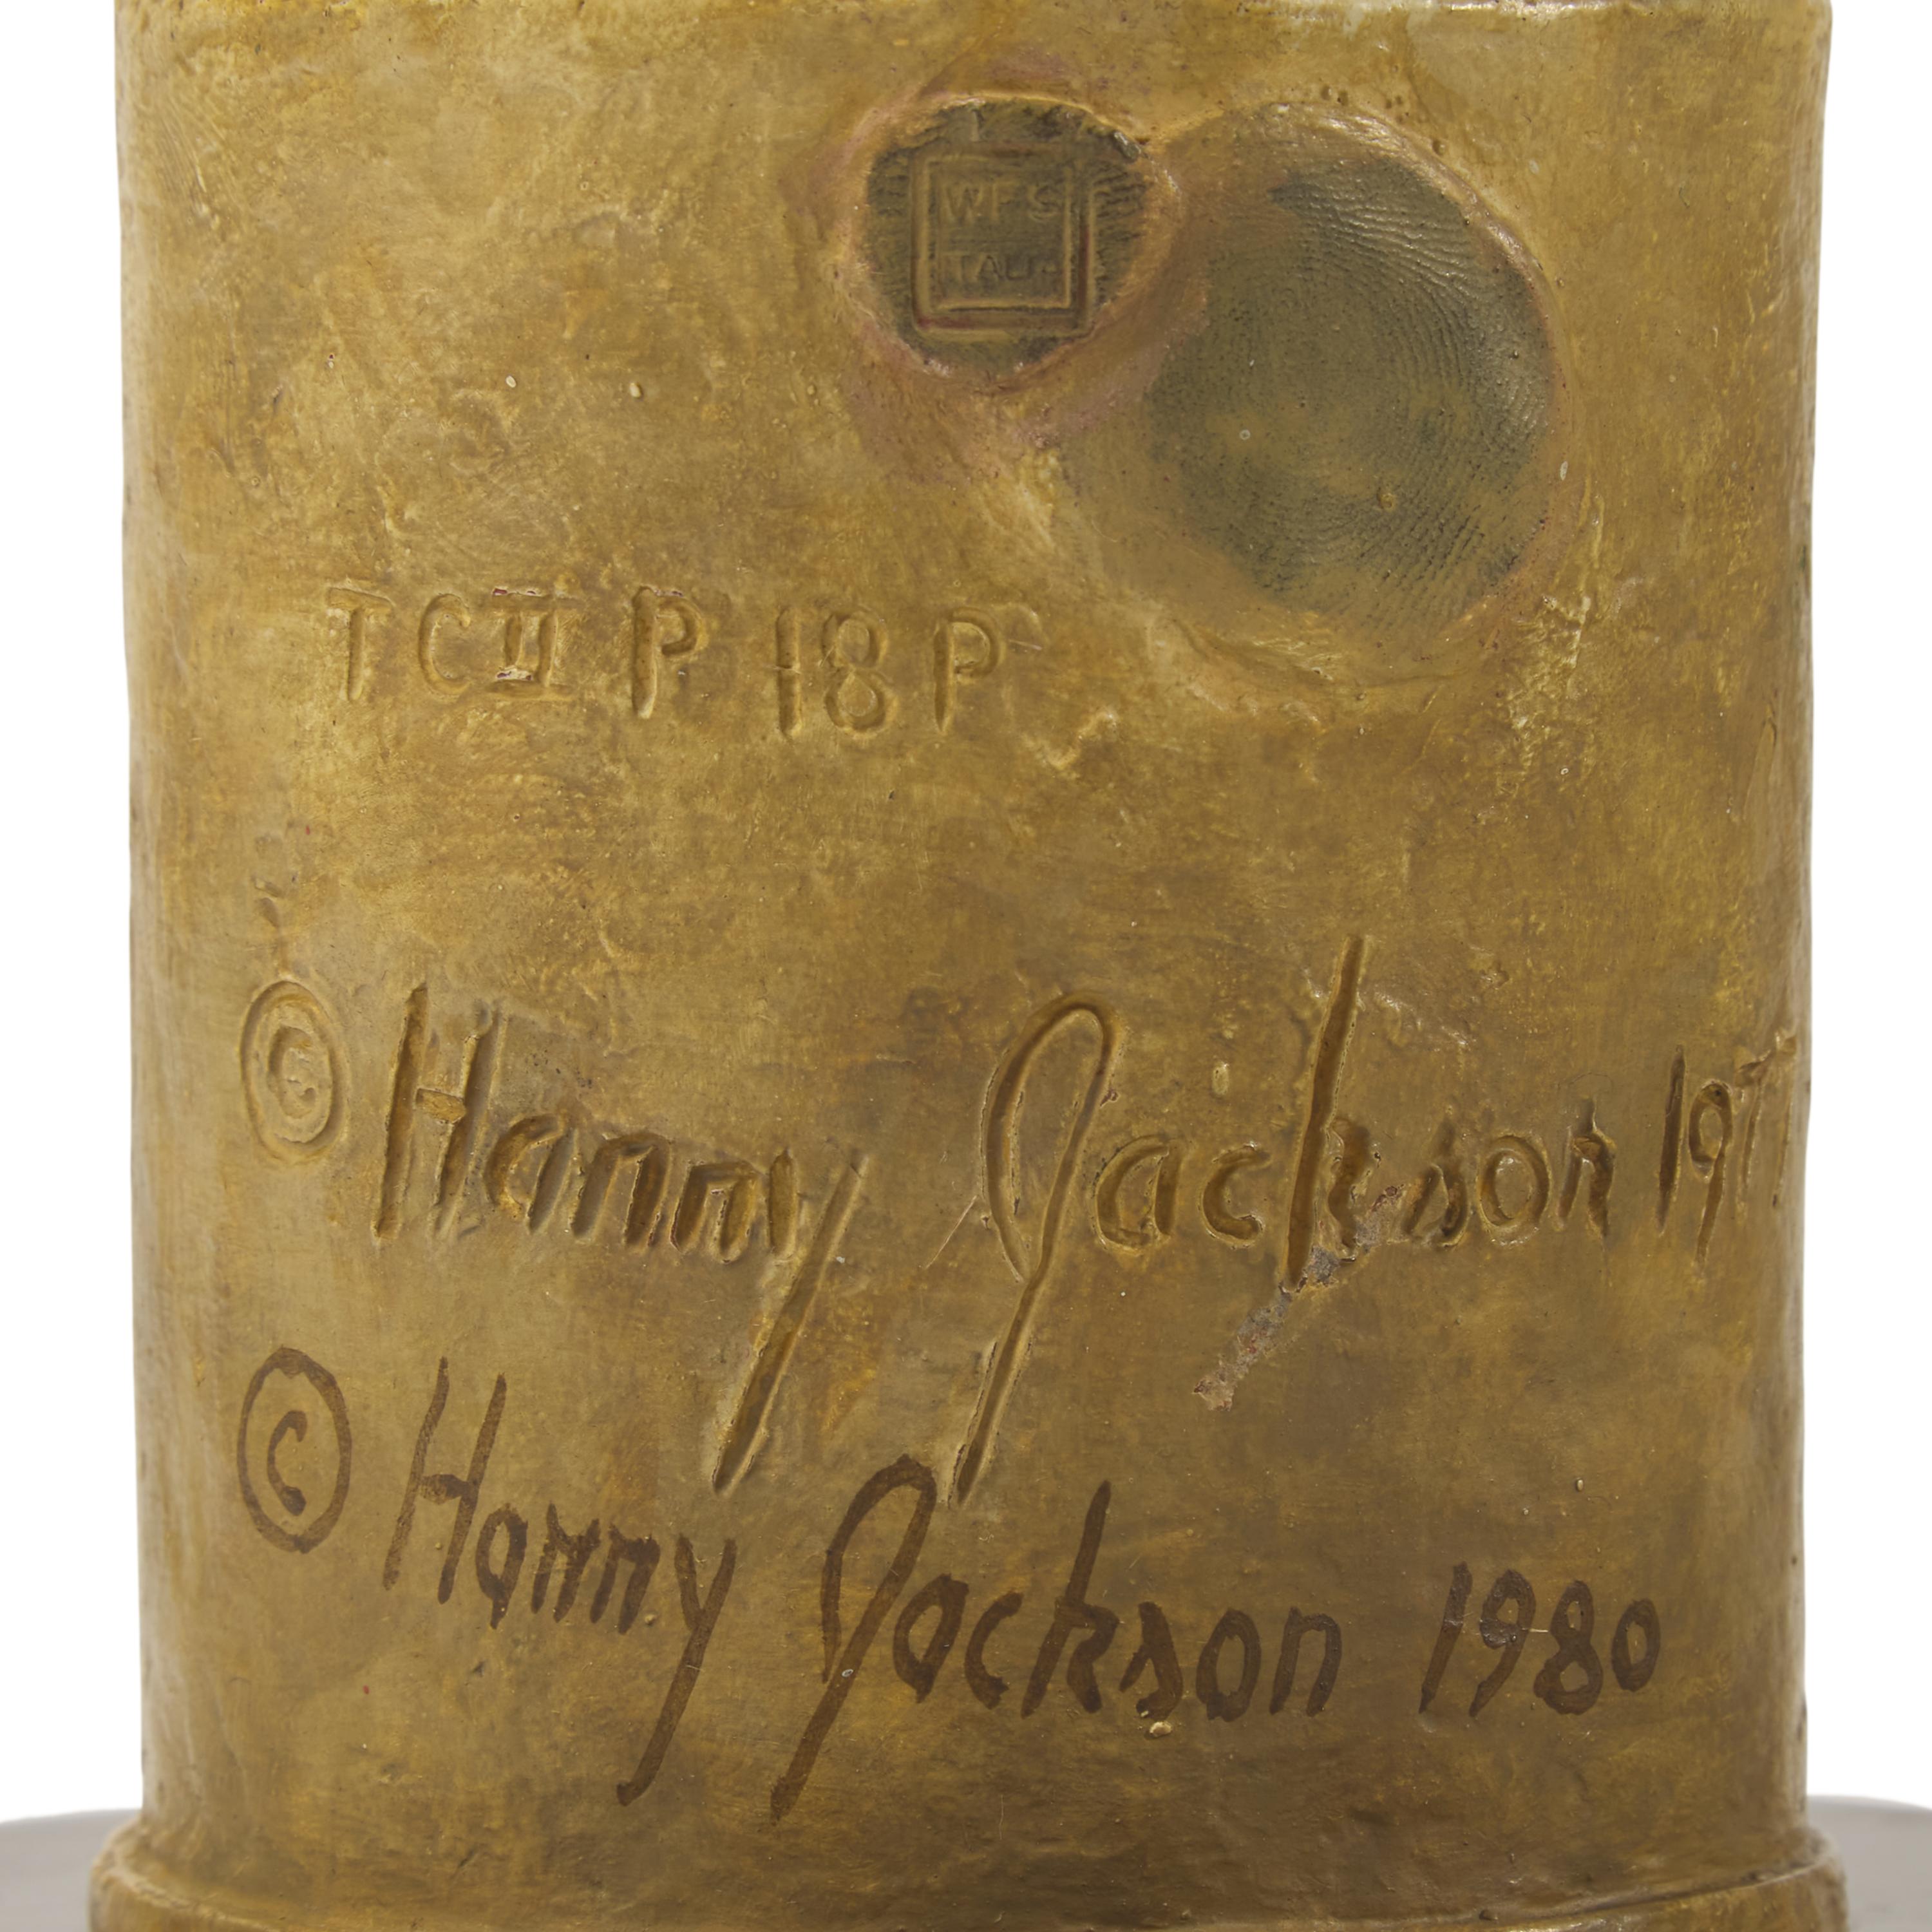 WFS
ITAL.
TC II P 18 P
© Harry Jackson 197
© Harry Jackson 1980